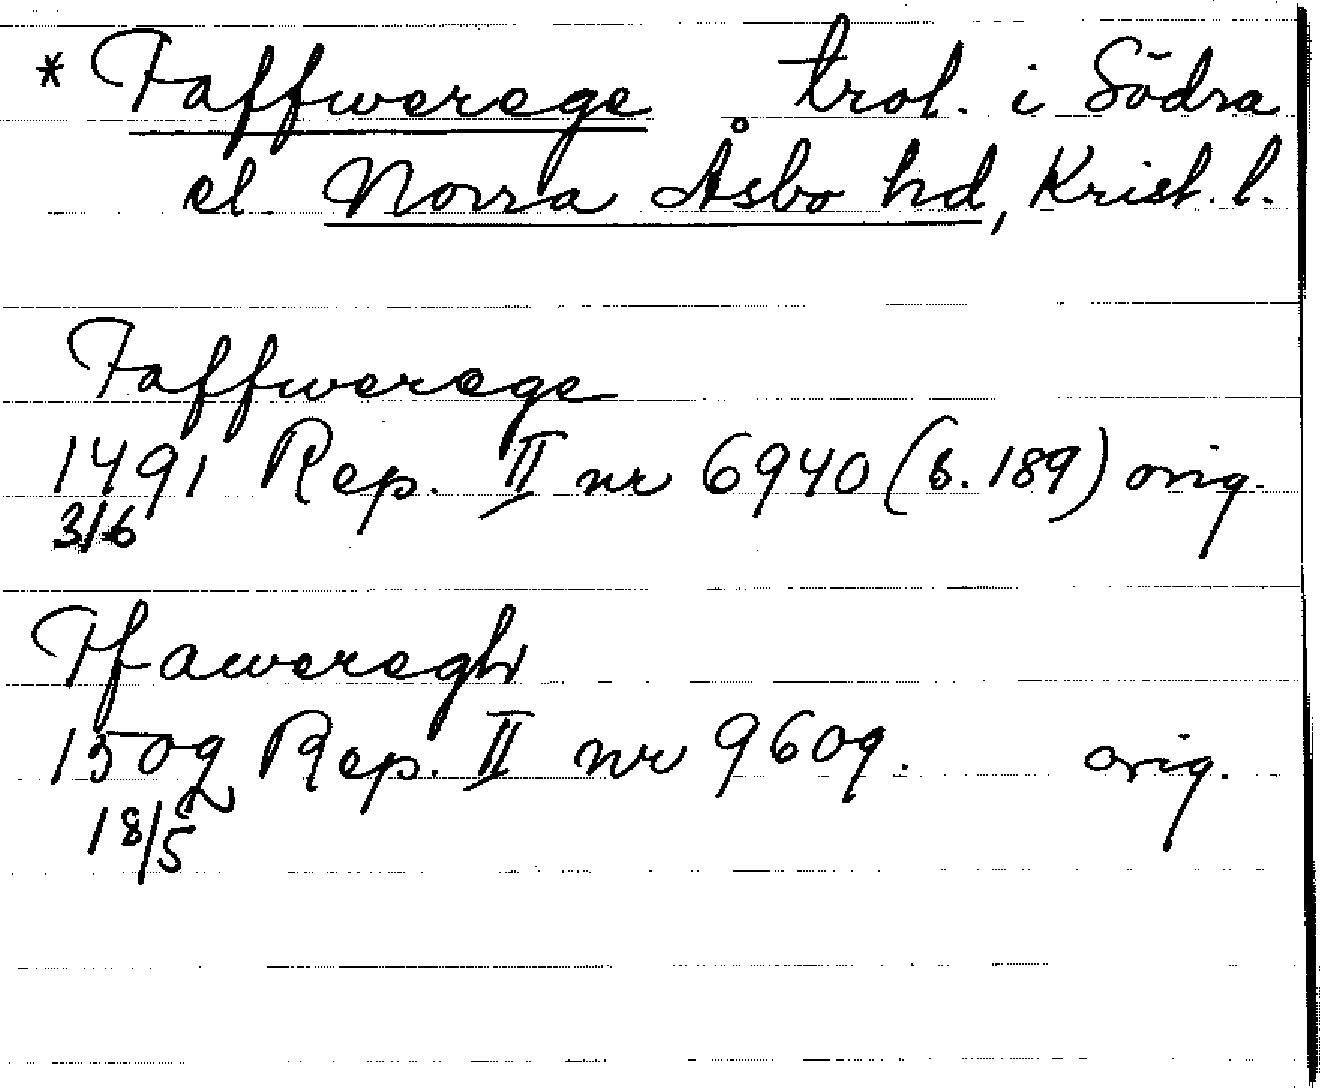 * Taffwerege trol. i Södra
el. Norra Åsbo hd, Krist. l.
Taffwerege
1491 Rep. II nr 6940 (s. 189) orig.
3/6
Tfaweregh
1509 Rep. II nr 9609. orig.
18/5